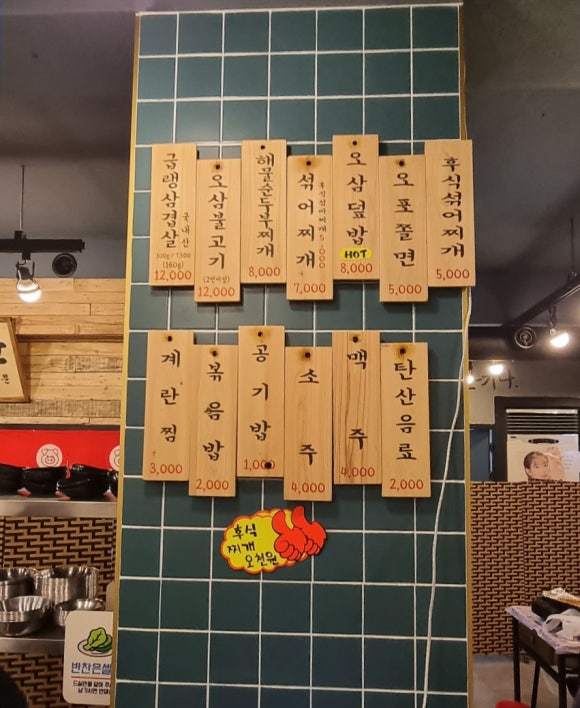 급랭삼겹살
국내산
100g / 7,500
(160g)
12,000
오삼불고기
(2인이상)
12,000
해물순두부찌개
8,000
섞어찌개
후식섞어찌개 5,000
7,000
오삼덮밥
HOT
8,000
오포쫄면
5,000
후식섞어찌개
5,000
계란찜
3,000
볶음밥
2,000
공기밥
1,000
소주
4,000
맥주
4,000
탄산음료
2,000
후식
찌개
오천원
반찬은셀